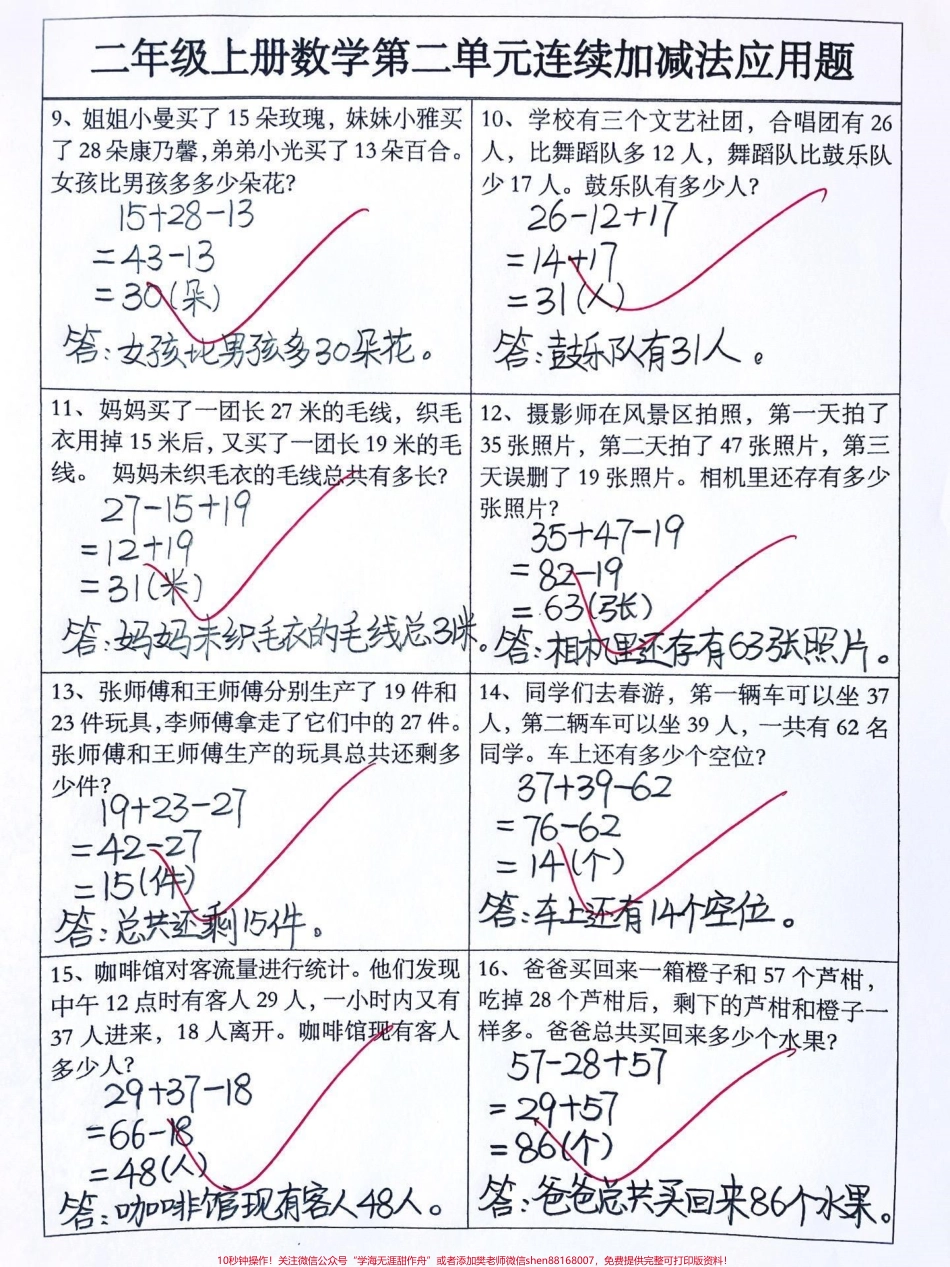 二年级上册数学第二单元连续加减法应用题
9、姐姐小曼买了 15 朵玫瑰，妹妹小雅买
了 28 朵康乃馨，弟弟小光买了 13 朵百合。
女孩比男孩多多少朵花？
15+28-13
=43-13
=30(朵)
答：女孩比男孩多30朵花。
10、学校有三个文艺社团，合唱团有 26
人，比舞蹈队多 12 人，舞蹈队比鼓乐队
少 17 人。鼓乐队有多少人？
26-12+17
=14+17
=31(人)
答：鼓乐队有31人。
11、妈妈买了一团长 27 米的毛线，织毛
衣用掉 15 米后，又买了一团长 19 米的毛
线。 妈妈未织毛衣的毛线总共有多长？
27-15+19
=12+19
=31(米)
答：妈妈未织毛衣的毛线总31米。
12、摄影师在风景区拍照，第一天拍了
35 张照片，第二天拍了 47 张照片，第三
天误删了 19 张照片。相机里还存有多少
张照片？
35+47-19
=82-19
=63(张)
答：相机里还存有63张照片。
13、张师傅和王师傅分别生产了 19 件和
23 件玩具，李师傅拿走了它们中的 27 件。
张师傅和王师傅生产的玩具总共还剩多
少件？
19+23-27
=42-27
=15(件)
答：总共还剩15件。
14、同学们去春游，第一辆车可以坐 37
人，第二辆车可以坐 39 人，一共有 62 名
同学。车上还有多少个空位？
37+39-62
=76-62
=14(个)
答：车上还有14个空位。
15、咖啡馆对客流量进行统计。他们发现
中午 12 点时有客人 29 人，一小时内又有
37 人进来，18 人离开。咖啡馆现有客人
多少人？
29+37-18
=66-18
=48(人)
答：咖啡馆现有客人48人。
16、爸爸买回来一箱橙子和 57 个芦柑，
吃掉 28 个芦柑后，剩下的芦柑和橙子一
样多。爸爸总共买回来多少个水果？
57-28+57
=29+57
=86(个)
答：爸爸总共买回来86个水果。
10秒钟操作！关注微信公众号“学海无涯甜作舟”或者添加樊老师微信shen88168007，免费提供完整可打印版资料！